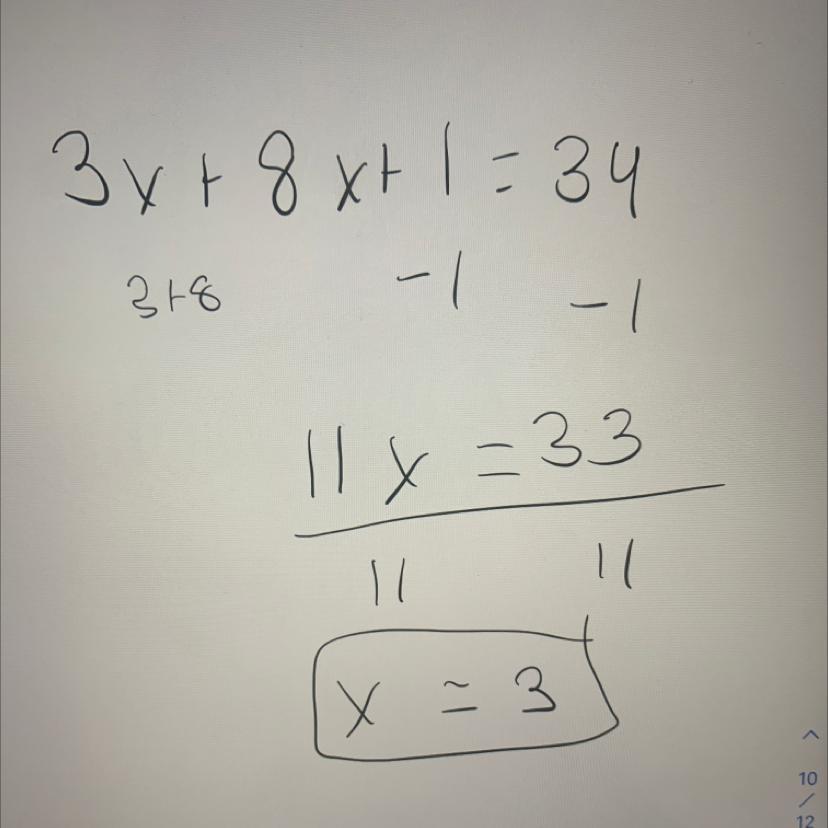 3x + 8x + 1 = 34
3+8 -1 -1
11x = 33
11 11
x = 3
^
10
/
12